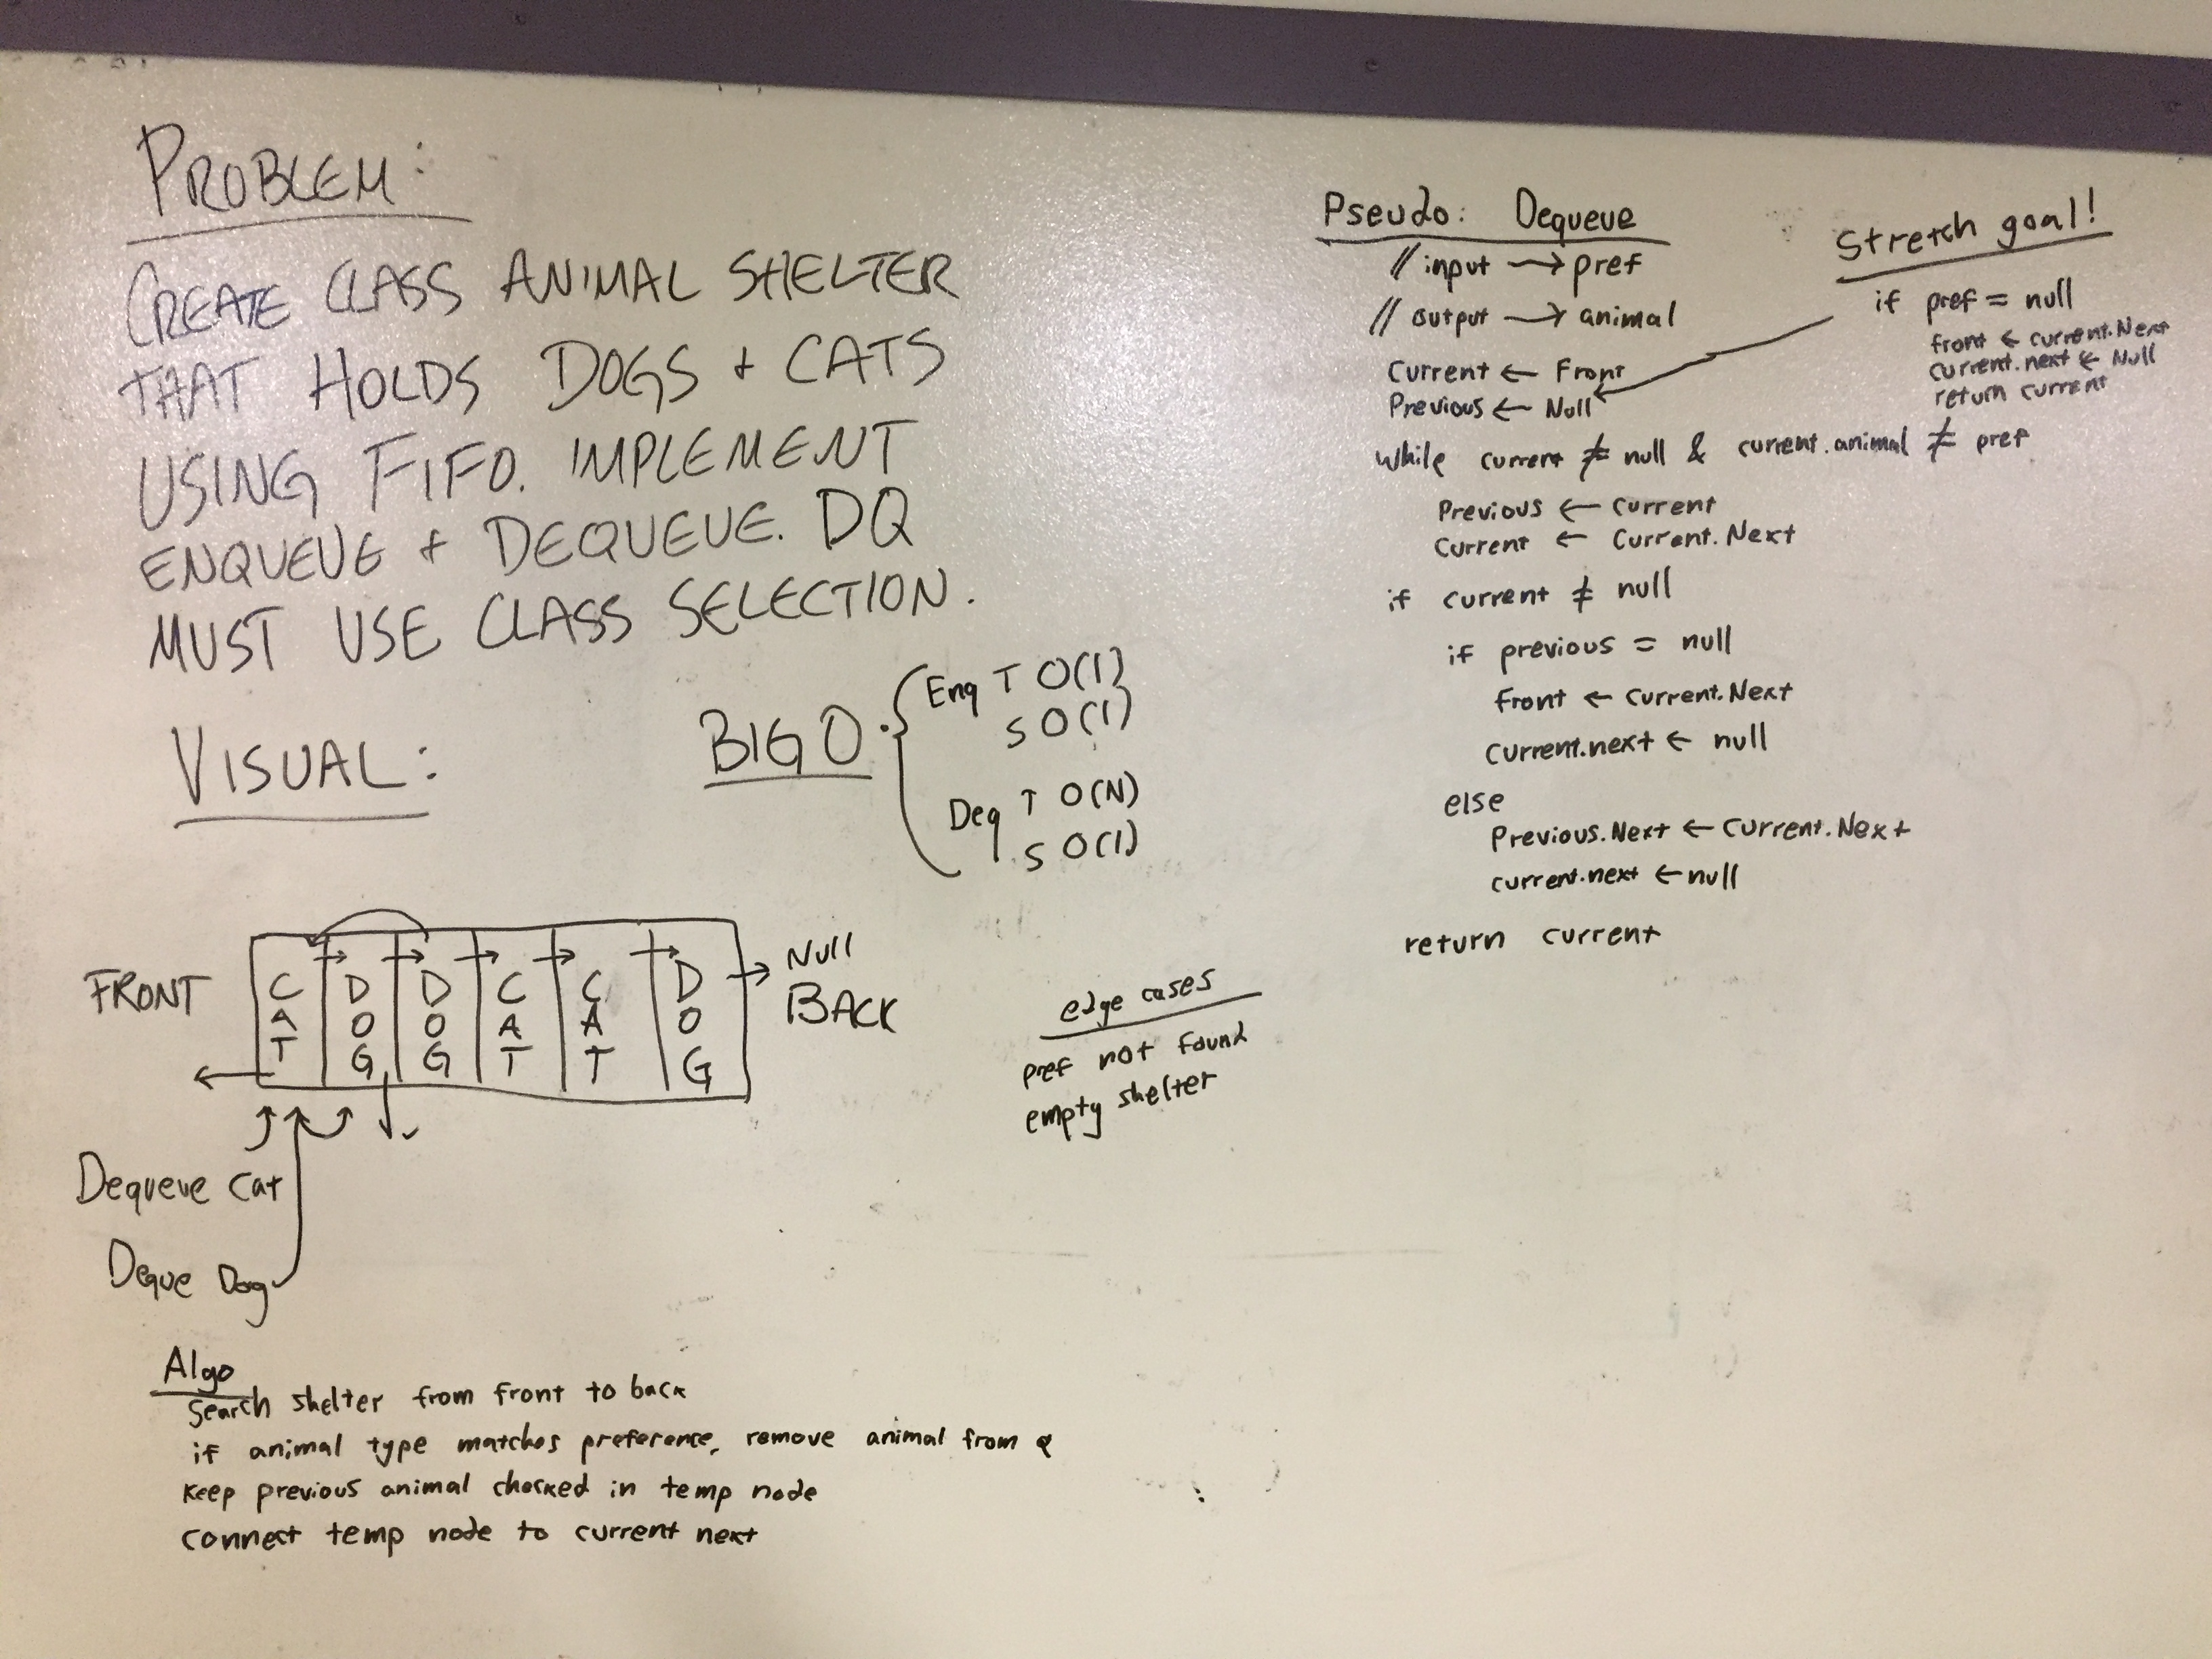 PROBLEM:
CREATE CLASS ANIMAL SHELTER
THAT HOLDS DOGS + CATS
USING FIFO. IMPLEMENT
ENQUEUE + DEQUEUE. DQ
MUST USE CLASS SELECTION.
VISUAL:
BIG O
Enq T O(1)
S O(1)
Deq T O(N)
S O(1)
FRONT
CAT
DOG
DOG
CAT
CAT
DOG
Null
BACK
Dequeue Cat
Deque Dog
Algo
Search shelter from front to back
if animal type matches preference, remove animal from Q
Keep previous animal checked in temp node
connect temp node to current next
edge cases
pref not found
empty shelter
Pseudo: Dequeue
// input → pref
// output → animal
Current ← Front
Previous ← Null
While current ≠ null & current.animal ≠ pref
Previous ← Current
Current ← Current.Next
if current ≠ null
if previous = null
Front ← Current.Next
Current.next ← null
else
Previous.Next ← Current.Next
current.next ← null
return current
Stretch goal!
if pref = null
front ← current.Next
current.next ← Null
return current